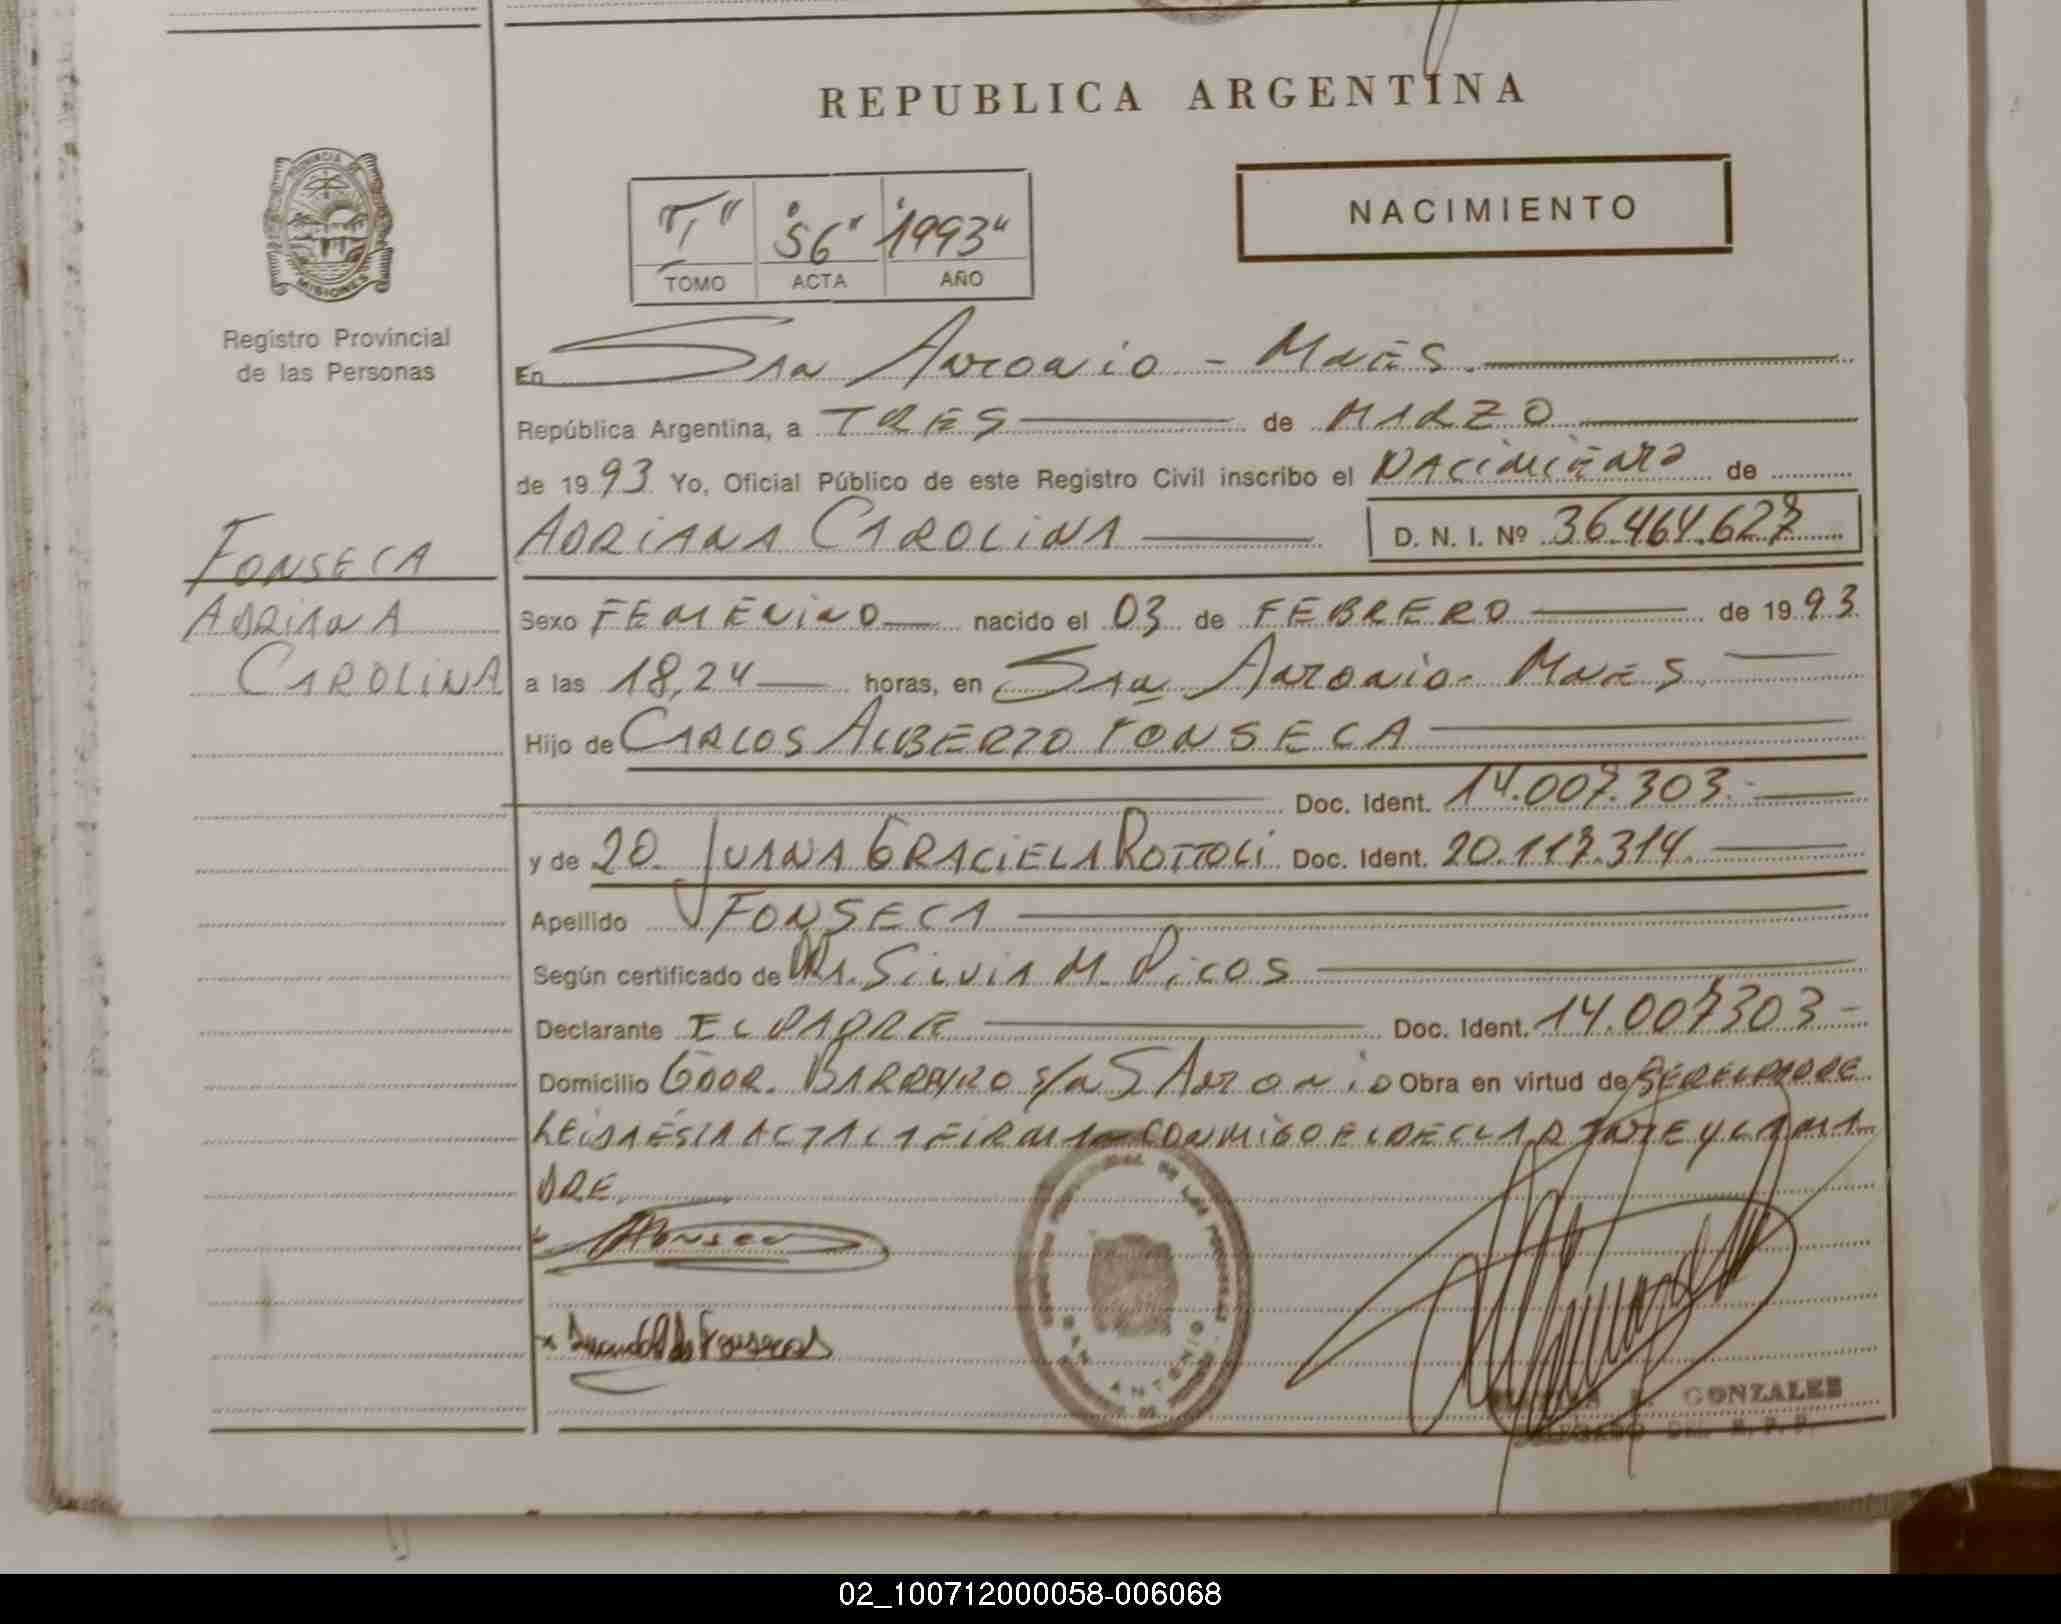 REPUBLICA ARGENTINA
NACIMIENTO
"I" "56" "1993"
TOMO ACTA AÑO
PROVINCIA DE
MISIONES
Registro Provincial
de las Personas
En San Antonio - Mnes.
República Argentina, a TRES de MARZO
de 1993 Yo, Oficial Público de este Registro Civil inscribo el NACIMIENTO de
ADRIANA CAROLINA D. N. I. Nº 36.464.627
FONSECA
ADRIANA
CAROLINA
Sexo FEMENINO nacido el 03 de FEBRERO de 1993
a las 18,24 horas, en San Antonio- Mnes.
Hijo de CARLOS ALBERTO FONSECA
Doc. Ident. 14.007.303.-
y de 20. JUANA GRACIELA ROTTOLI Doc. Ident. 20.117.314.
Apellido FONSECA
Según certificado de Dra. SILVIA M. PICOS
Declarante EL PADRE Doc. Ident. 14.007303-
Domicilio GDOR. BARREYRO s/n S ANTONIO Obra en virtud de SER EL PADRE
LEIDA ESTA ACTA LA FIRMA CONMIGO EL DECLARANTE Y LA MA
DRE.
Fonseca
de Fonseca
SAN ANTONIO
GONZALEZ
DELEGADO DEL R. P. P.
02_100712000058-006068